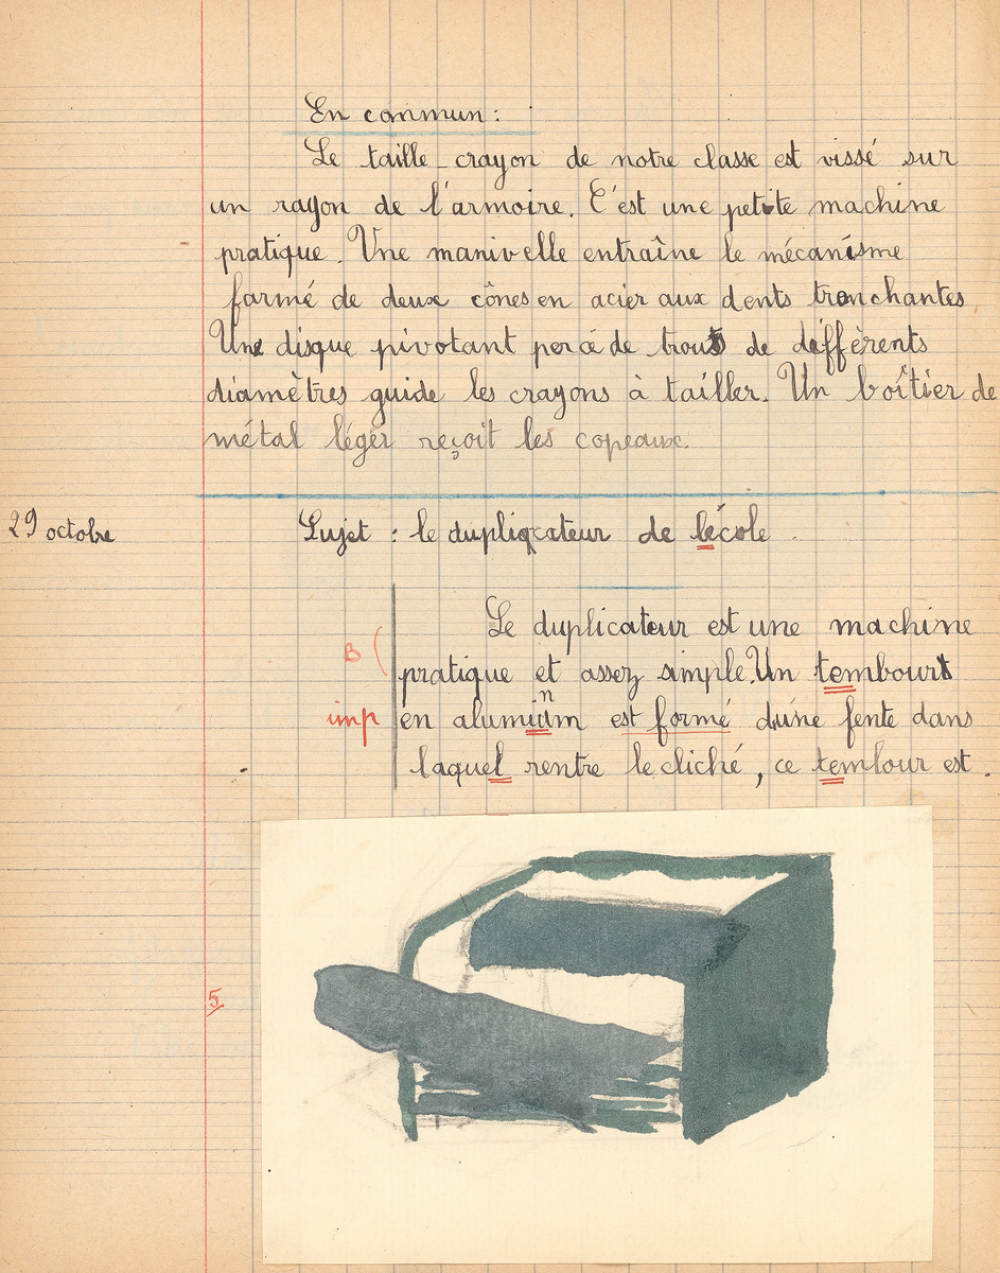 En commun :
Le taille-crayon de notre classe est vissé sur
un rayon de l'armoire. C'est une petite machine
pratique. Une manivelle entraîne le mécanisme
formé de deux cônes en acier aux dents tranchantes,
Une disque pivotant percé de trous de diffèrents
diamètres guide les crayons à tailler. Un boîtier de
métal léger reçoit les copeaux.
29 octobre
Sujet : le duplicateur de lécole.
Le duplicateur est une machine
B
pratique et assez simple. Un tembourt
n
imp
en alumium est formé dúne fente dans
laquel rentre le cliché, ce tembour est.
5